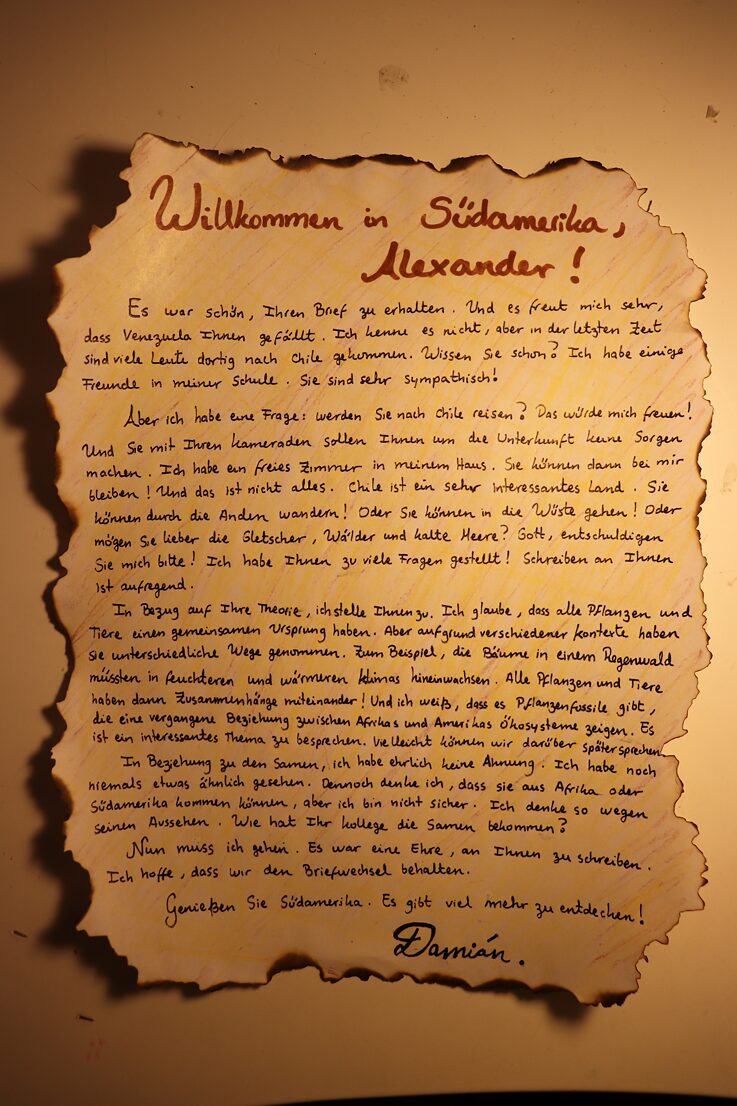 Willkommen in Südamerika,
Alexander!
Es war schön, Ihren Brief zu erhalten. Und es freut mich sehr,
dass Venezuela Ihnen gefällt. Ich kenne es nicht, aber in der letzten Zeit
sind viele Leute dortig nach Chile gekommen. Wissen Sie schon? Ich habe einige
Freunde in meiner Schule. Sie sind sehr sympathisch!
Aber ich habe eine Frage: werden Sie nach Chile reisen? Das würde mich freuen!
Und Sie mit Ihren Kameraden sollen Ihnen um die Unterkunft keine Sorgen
machen. Ich habe ein freies Zimmer in meinem Haus. Sie können dann bei mir
bleiben! Und das ist nicht alles. Chile ist ein sehr interessantes Land. Sie
können durch die Anden wandern! Oder Sie können in die Wüste gehen! Oder
mögen Sie lieber die Gletscher, Wälder und kalte Meere? Gott, entschuldigen
Sie mich bitte! Ich habe Ihnen zu viele Fragen gestellt! Schreiben an Ihnen
ist aufregend.
In Bezug auf Ihre Theorie, ich stelle Ihnen zu. Ich glaube, dass alle Pflanzen und
Tiere einen gemeinsamen Ursprung haben. Aber aufgrund verschiedener Kontexte haben
sie unterschiedliche Wege genommen. Zum Beispiel, die Bäume in einem Regenwald
müssten in feuchteren und wärmeren Klimas hineinwachsen. Alle Pflanzen und Tiere
haben dann Zusammenhänge miteinander! Und ich weiß, dass es Pflanzenfossile gibt,
die eine vergangene Beziehung zwischen Afrikas und Amerikas Ökosysteme zeigen. Es
ist ein interessantes Thema zu besprechen. Vielleicht können wir darüber später sprechen.
In Beziehung zu den Samen, ich habe ehrlich keine Ahnung. Ich habe noch
niemals etwas ähnlich gesehen. Dennoch denke ich, dass sie aus Afrika oder
Südamerika kommen können, aber ich bin nicht sicher. Ich denke so wegen
seinen Aussehen. Wie hat Ihr Kollege die Samen bekommen?
Nun muss ich gehen. Es war eine Ehre, an Ihnen zu schreiben.
Ich hoffe, dass wir den Briefwechsel behalten.
Genießen Sie Südamerika. Es gibt viel mehr zu entdecken!
Damián.